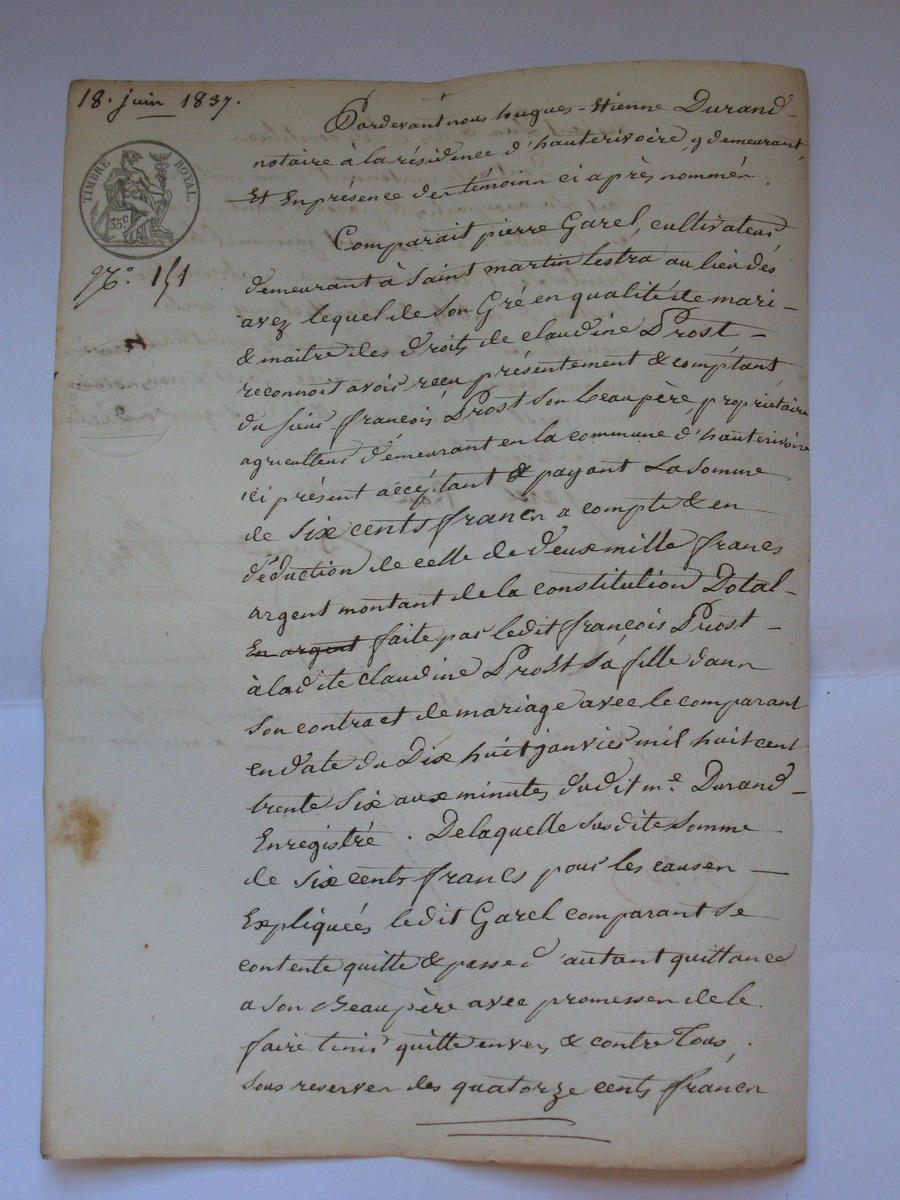 18. juin 1837.
TIMBRE ROYAL.
35c
N.° 151
Pardevant nous hugues-Etienne Durand
notaire à la résidence d'hauterivoire, y demeurant,
Et En présence des témoins ci après nommés.
Comparait pierre Garel, cultivateur
demeurant à Saint martin lestra au lieu des
avez lequel de son Gré en qualité de mari
& maitre des droits de claudine Prost
reconnoit avoir reçu présentement & comptant
du sieur françois Prost son beaupère, propriétaire
agriculteur demeurant en la commune d'hauterivoire
ici présent accéptant & payant La somme
de six cents francs a compte & en
déduction de celle de deux mille francs
argent montant de la constitution Dotal
En argent faite par ledit françois Prost
à ladite claudine Prost sa fille dans
son contract de mariage avec le comparant
en date du Dix huit janvier mil huit cent
trente six aux minutes dudit m.e Durand
Enregistré. De laquelle susdite somme
de six cents francs pour les causes
Expliquées ledit Garel comparant se
contente quitte & passe d'autant quittance
a son Beaupère avec promesses de le
faire tenir quitte envers & contre Tous,
sous reserves des quatorze cents francs